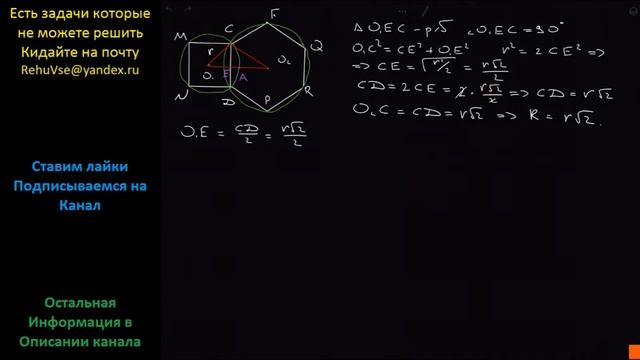 Есть задачи которые
не можете решить
Кидайте на почту
RehuVse@yandex.ru
Ставим лайки
Подписываемся на
Канал
Остальная
Информация в
Описании канала
M
C
F
Q
r
O₁
E
A
O₂
N
D
P
R
O₁E = CD/2 = r√2/2
Δ O₁EC - р/б ∠O₁EC = 90°
O₁C² = CE² + O₁E² r² = 2CE² =>
=> CE = √r²/2 = r√2/2
CD = 2CE = 2 · r√2/2 => CD = r√2
O₂C = CD = r√2 => R = r√2.